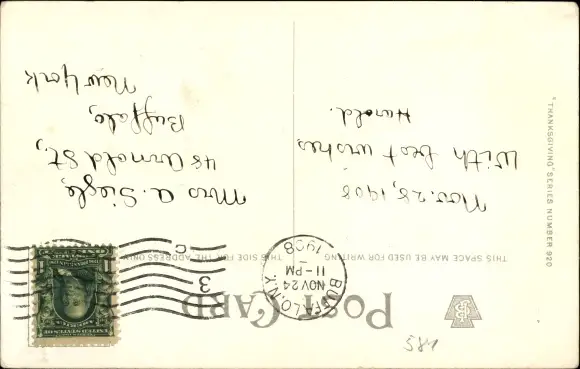 581
POST CARD
BUFFALO, N.Y.
NOV 24
11-PM
1908
3
C
THIS SPACE MAY BE USED FOR WRITING
THIS SIDE FOR THE ADDRESS ONLY
"THANKSGIVING" SERIES NUMBER 920
Nov. 28, 1908
With best wishes
Harold.
Mrs A. Siegle,
48 Arnold St.,
Buffalo,
New York